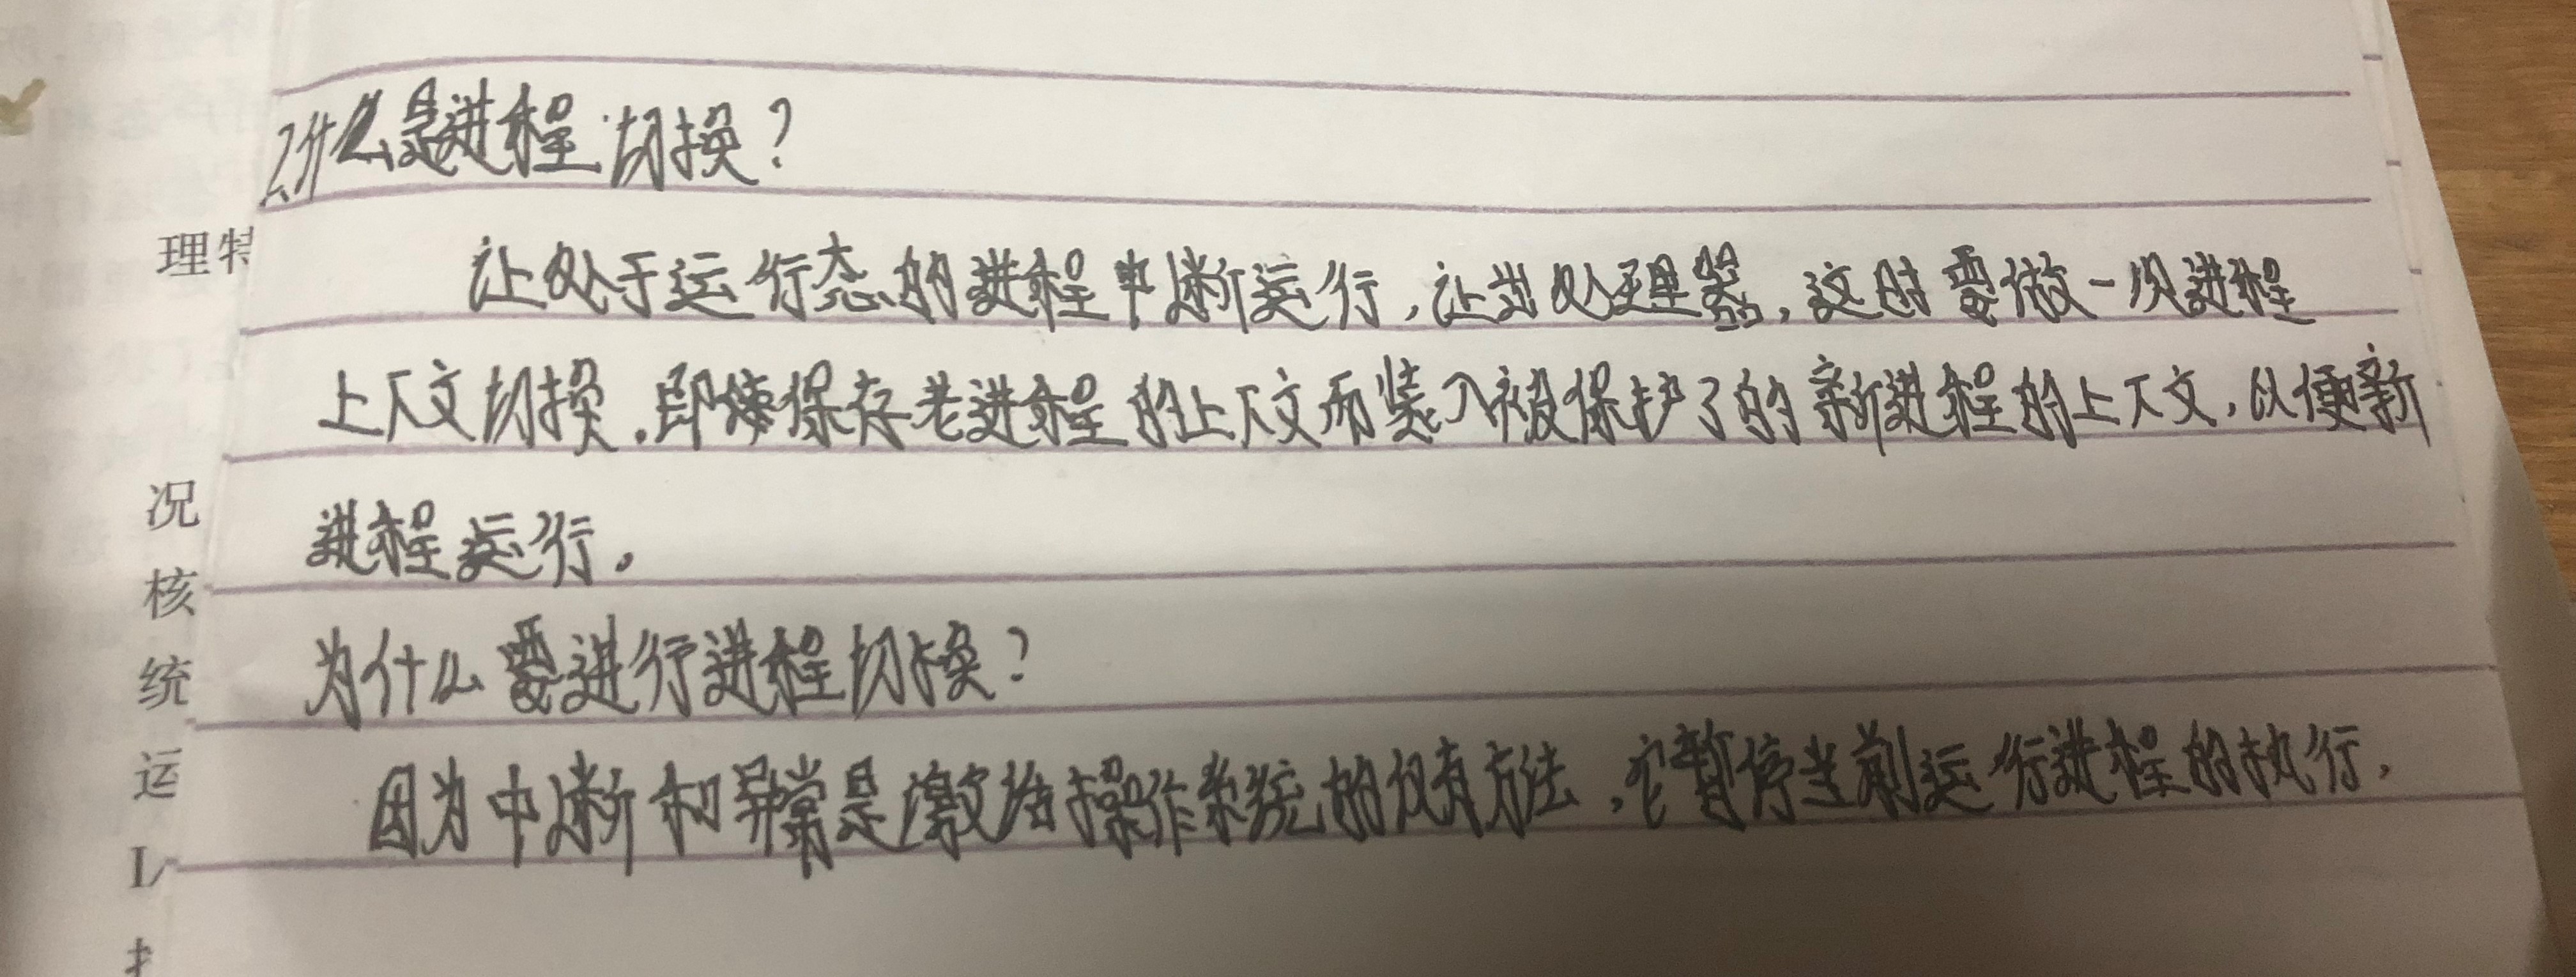 2.什么是进程切换?
让处于运行态的进程中断运行,让出处理器,这时要做一次进程
上下文切换.即保存老进程的上下文而装入被保护了的新进程的上下文,以便新
进程运行.
为什么要进行进程切换?
因为中断和异常是激活操作系统的仅有方法,它暂停当前运行进程的执行,
理特
况
核
统
运